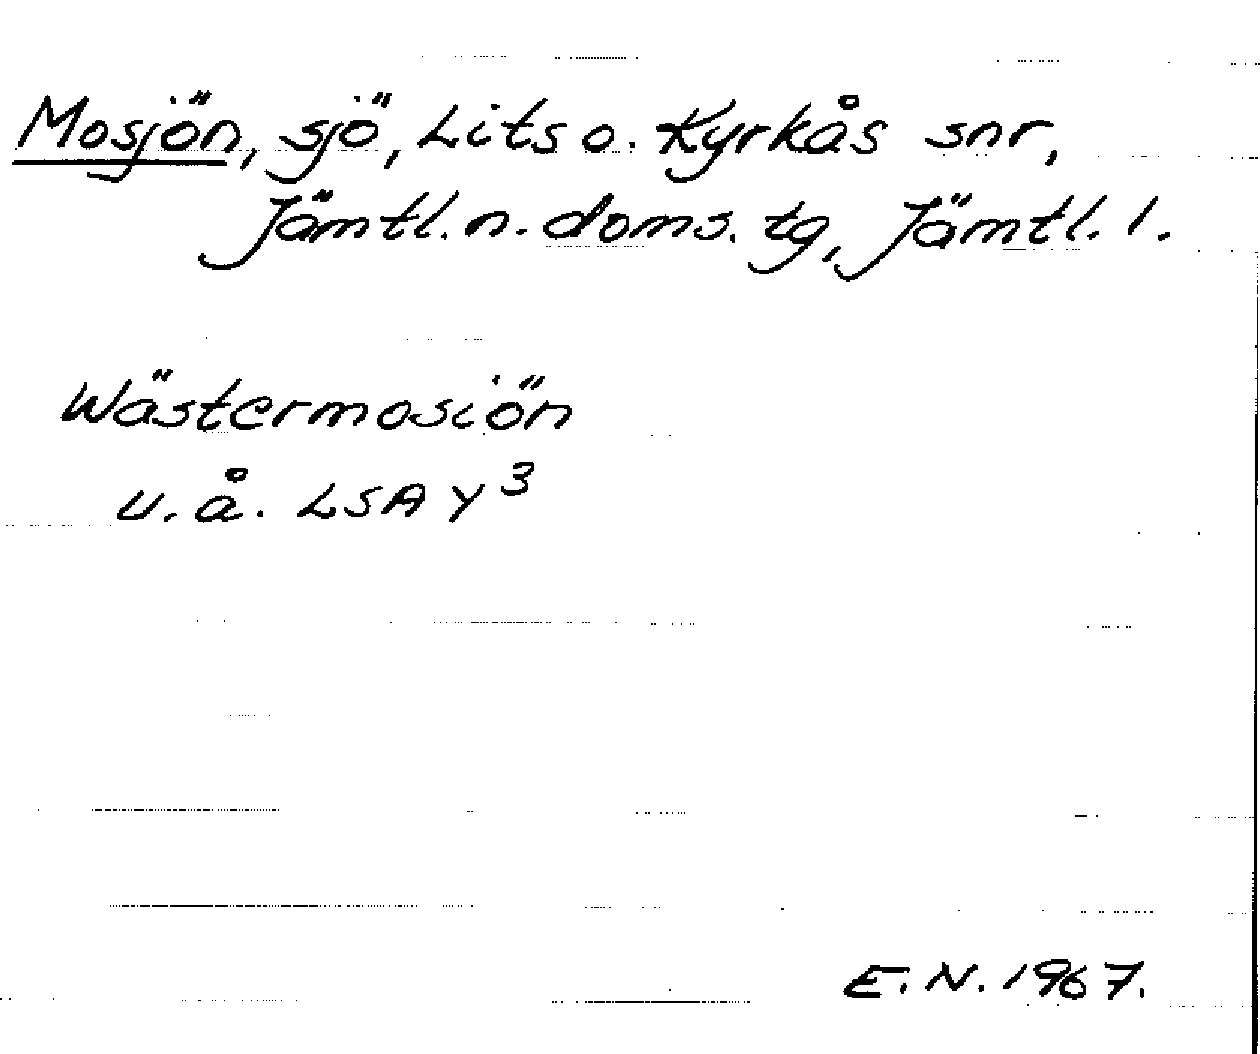 Mosjön, sjö, Lits o. Kyrkås snr,
Jämtl. n. doms. tg, Jämtl. l.
Wästermosiön
u. å. LSA Y³
E. N. 1967.